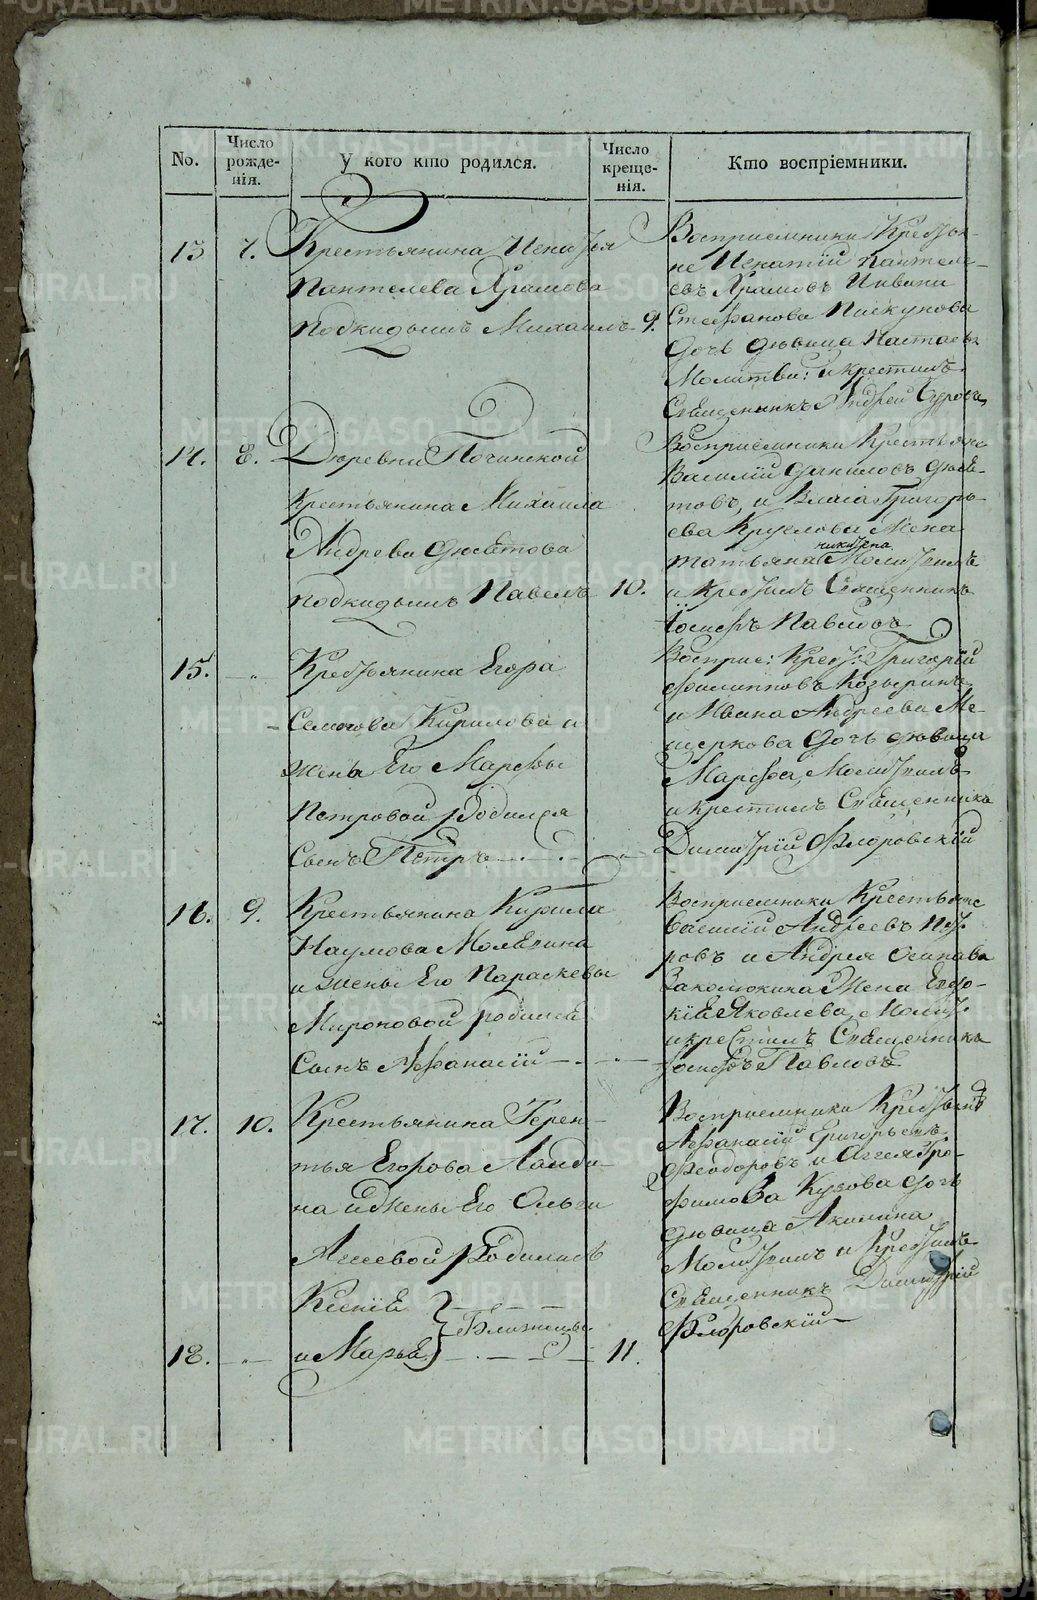 No.
Число рожде-нія.
У кого кто родился.
Число креще-нія.
Кто воспріемники.
13
7.
Крестьянина Игнатья
Пантелева Храмова
подкидышъ Михаилъ
9.
Воспріемники Крестья-
не Игнатій Пантеле-
евъ Храмовъ и Ивана
Стефанова Пискунова
дочь девица Настасья
Молитви: и крестилъ
Священникъ Андрей
14.
8.
Деревни Починской
Крестьянина Михаила
Андреева
подкидышъ Павелъ
10.
Воспріемники Крестьяне
Василій Даниловъ
и Власа Григорь-
ева Круглова Жена
Татьяна Никитена Молитвилъ
и крестилъ Священникъ
Іосифъ Павловъ
15.
"
Крестьянина Егора
Кирилова и
жены Его Марфы
Петровой родился
Сынъ Петръ
Воспріе: Крест: Григорій
Филипповъ Козыринъ
и Ивана Андреева Ме-
щеркова дочь девица
Марфа, Молитвилъ
и крестилъ Священникъ
Димитрій Флоровскій
16.
9.
Крестьянина Кирила
Наумова
и жены Его Параскевы
Мироновой родился
Сынъ Афанасій
Воспріемники Крестьяне
Василій Андреевъ Пет-
ровъ и Андрея Осипова
Жена Евдо-
кія Яковлева, Молит.
и крестилъ Священникъ
Іосифъ Павловъ
17.
10.
Крестьянина Терен-
тья Егорова
на и жены Его Ольги
родились
Ксенія
18.
и Марья } Близнецы
11.
Воспріемники Крестьяне
Афанасій Григорьевъ
Феодоровъ и Аггея Тро-
фимова Кузова дочь
девица Акилина
Молитвилъ и Крестилъ
Священникъ Димитрій
Флоровскій
METRIKI.GASO-URAL.RU